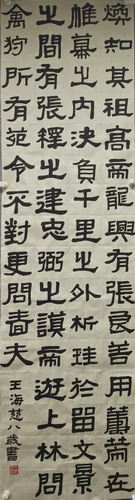 煥知其祖高帝龍興有張良善用籌策在
帷幕之内決負千里之外析珪於留文景
之間有張釋之建忠弼之謨帝遊上林問
禽狩所有苑令不對更問嗇夫
王海慈八歲書